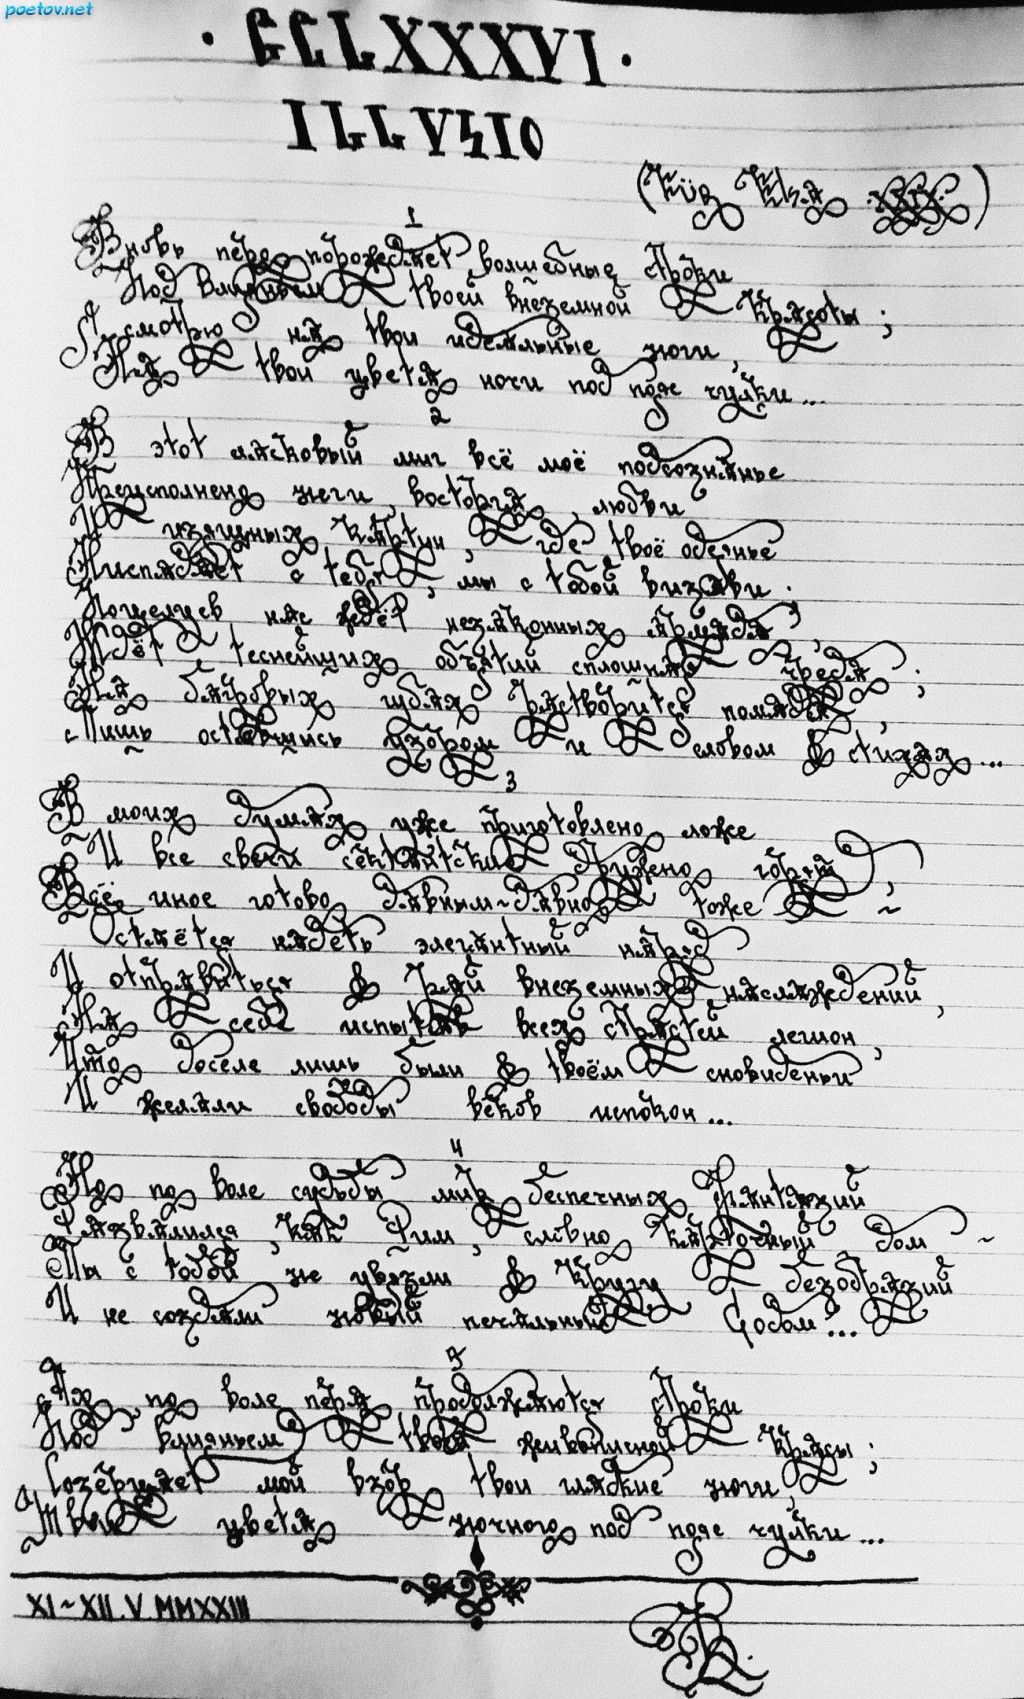 poetov.net
· CCLXXXVI ·
ILLVSIO
(Für Elsa XXIX)
1
Вновь перо порождает волшебные строки
Под влияньем твоей внеземной красоты;
Я смотрю на твои идеальные ноги,
На твои цвета ночи под пояс чулки...
2
В этот ласковый миг всё моё подсознанье
Преисполнено неги, восторга, любви
И изящных картин, где твоё одеянье
Ниспадает с тебя, мы с тобой визави.
Поцелуев нас ждёт незаконных армада,
Ждёт теснейших объятий сплошная чреда;
На багровых губах растворится помада,
Лишь оставшись узором и словом в стихах...
3
В моих думах уже приготовлено ложе
И все свечи сектантские дружно горят,
Всё иное готово давным-давно тоже ~
Остаётся надеть элегантный наряд
И отправиться в рай внеземных наслаждений,
На себе испытав всех страстей легион,
Что доселе лишь были в твоём сновиденьи
И желали свободы веков испокон...
4
Но по воле судьбы мир беспечных фантазий
Развалился, как Рим, словно карточный дом ~
Мы с тобой не увязли в кругу безобразий
И не создали новый печальный Содом...
5
Ах, по воле пера продолжаются строки
Под влияньем твоей живописной красы;
Созерцает мой взор твои гладкие ноги,
Твои цвета ночного под пояс чулки...
XI~XII.V.MMXXIII